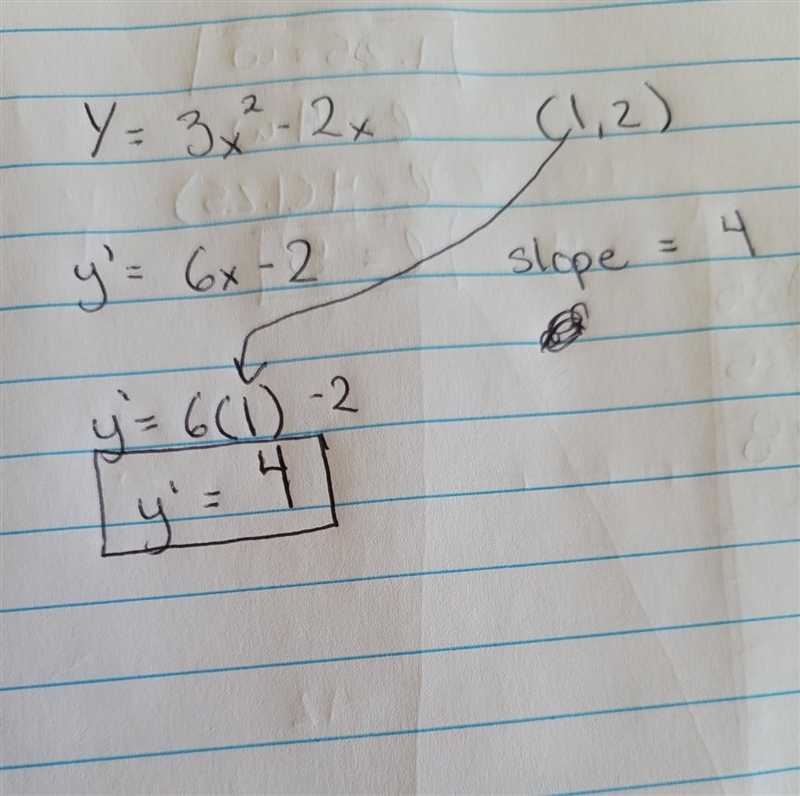 Y = 3x² - 2x (1,2)
y' = 6x - 2 slope = 4
y' = 6(1) - 2
y' = 4